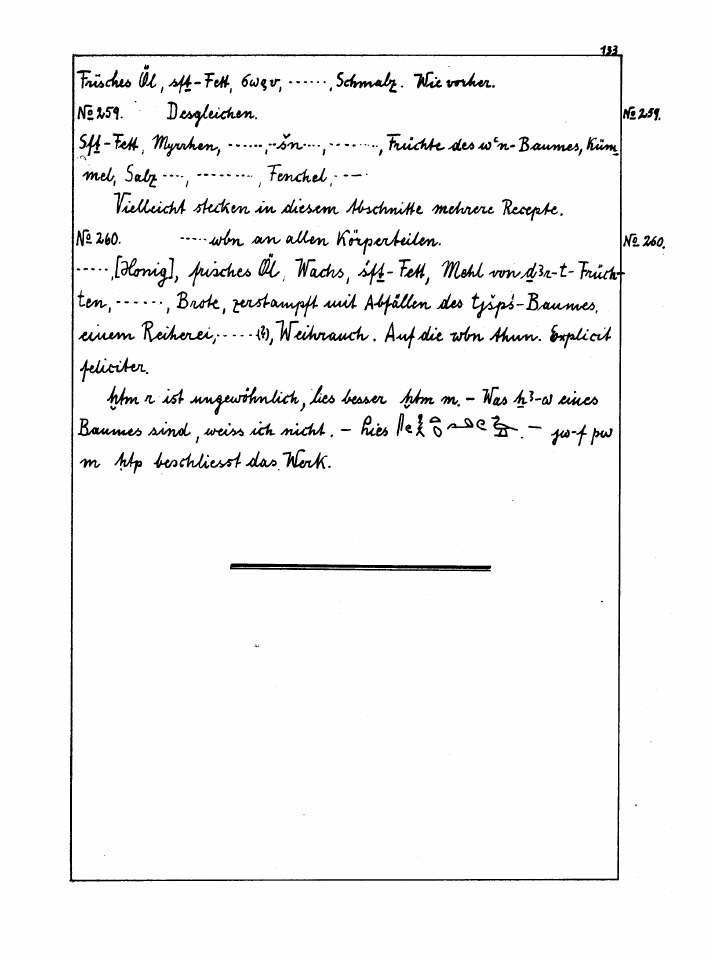 133
Frisches Öl, sfṯ-Fett, ......, Schmalz. Wie vorher.
No 259. Desgleichen. No 259.
Sfṯ-Fett, Myrrhen, ......, ..šn...., ........, Früchte des wꜥn-Baumes, Küm
mel, Salz ...., ........., Fenchel, ....
Vielleicht stecken in diesem Abschnitte mehrere Recepte.
No 260. .....wbn an allen Körperteilen. No 260.
....., [Honig], frisches Öl, Wachs, śfṯ-Fett, Mehl von ḏꜣr-t-Früch-
ten, ......, Brote, zerstampft mit Abfällen des tjšpś-Baumes,
einem Reiherei, ..... (?), Weihrauch. Auf die wbn thun. Explicit
feliciter.
ḫtm r ist ungewöhnlich, lies besser ḫtm m. – Was ẖꜣ-w eines
Baumes sind, weiss ich nicht. – Lies . – jw-f pw
m ḥtp beschliesst das Werk.